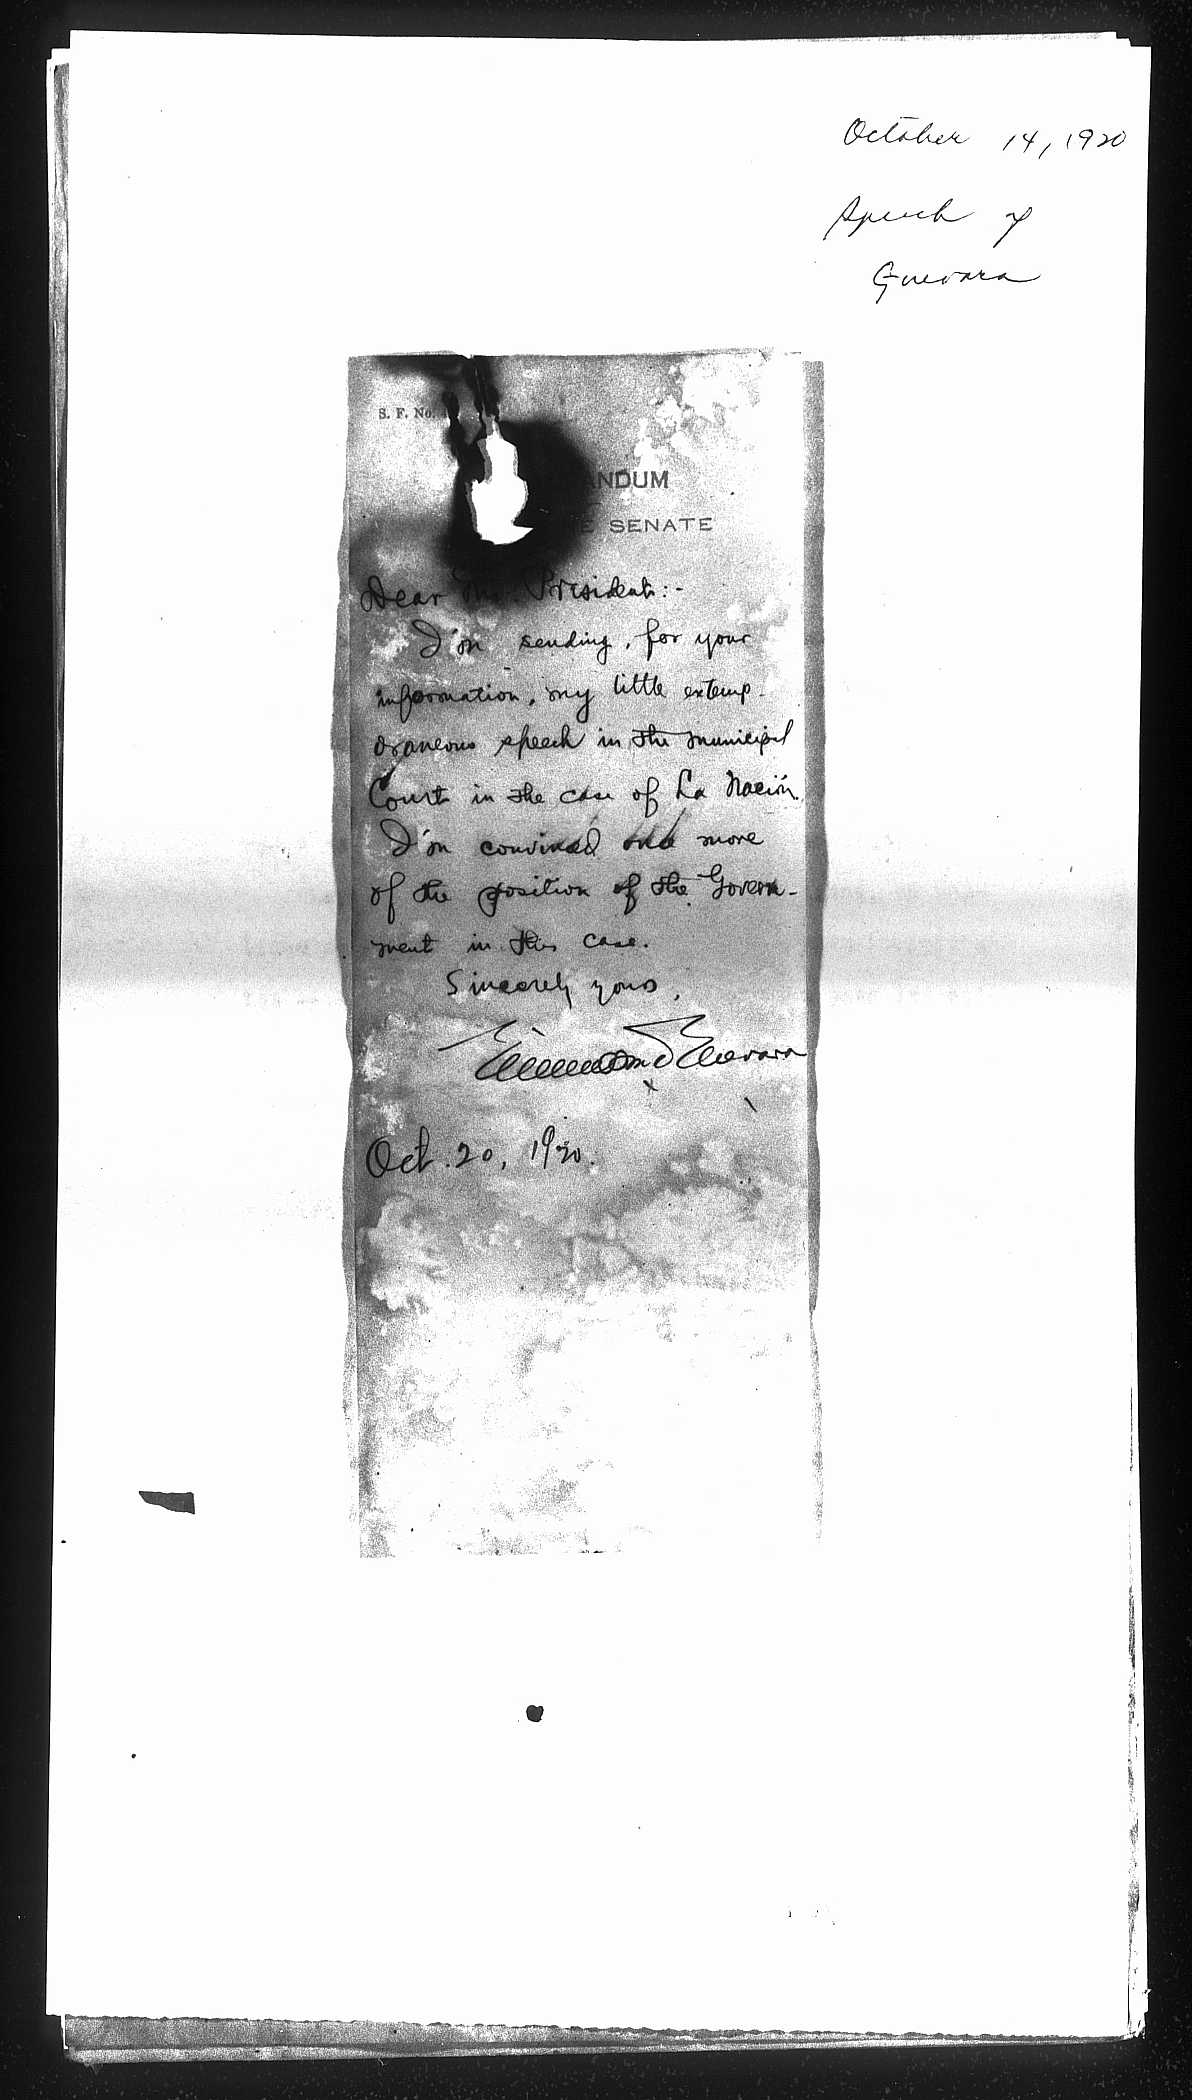 October 14, 1920
Speech of
Guevara
S. F. No.
ANDUM
E SENATE
Dear Mr. President:-
I'm sending, for your
information, my little extemp-
oraneous speech in the municipal
Court in the case of La Nación.
I'm convinced more
of the position of the Govern-
ment in this case.
Sincerely yours,
Guevara
Oct. 20, 1920.